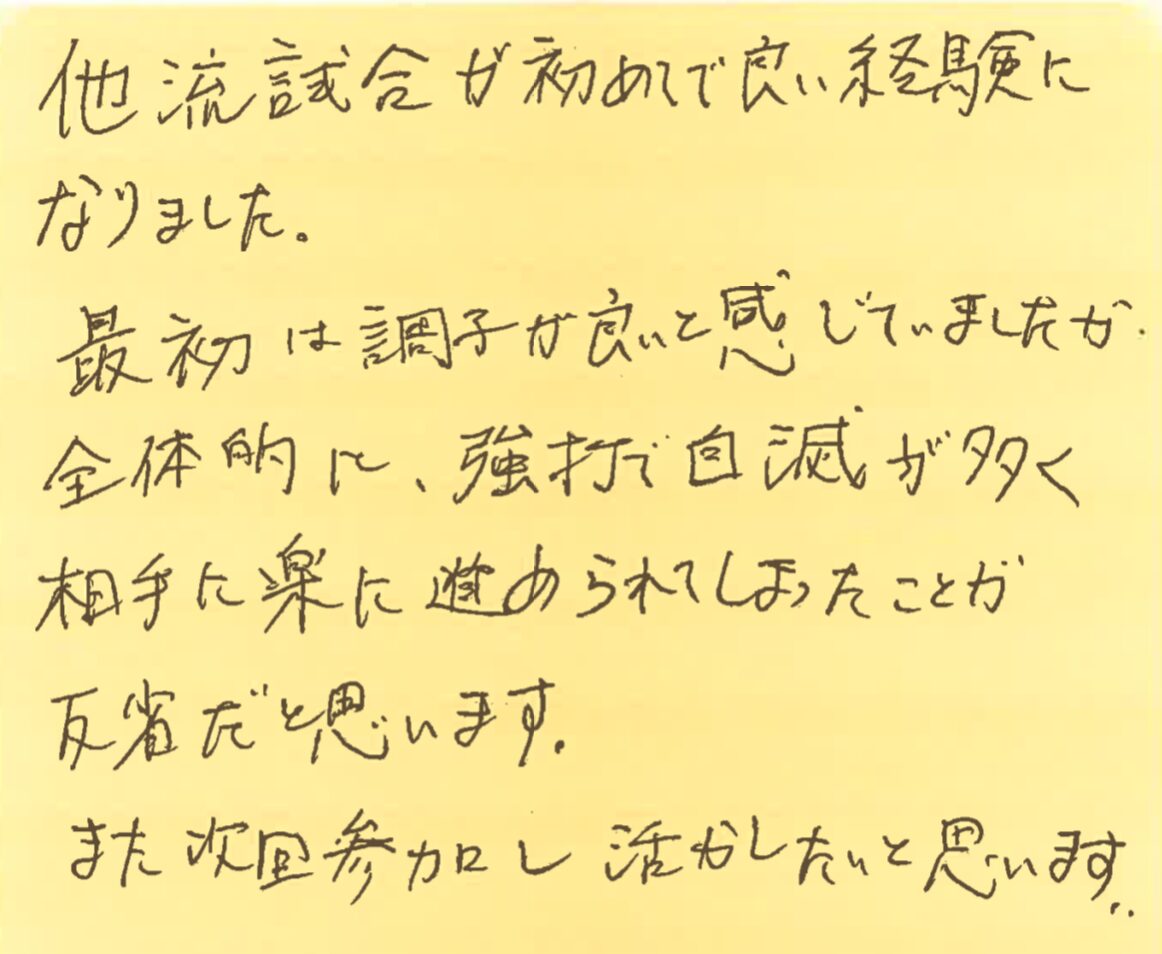 他流試合が初めてで良い経験に
なりました。
最初は調子が良いと感じていましたが
全体的に、強打で自滅が多く
相手に楽に進められてしまったことが
反省だと思います。
また次回参加し活かしたいと思います。